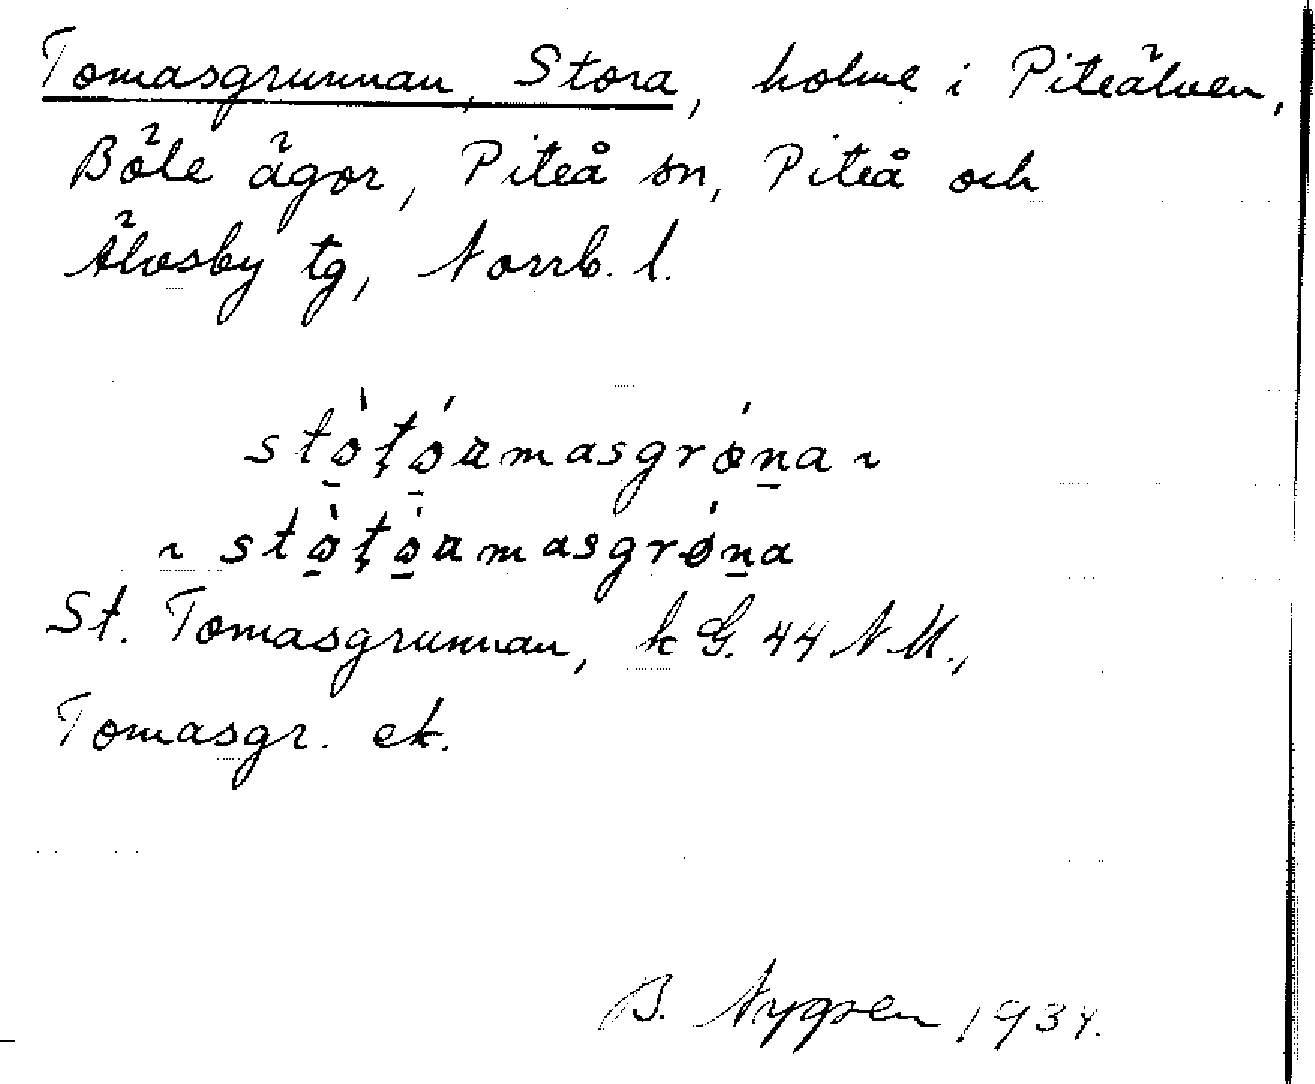 Tomasgrunnan, Stora, holme i Piteälven,
Böle ägor, Piteå sn, Piteå och
Älvsby tg, Norrb. l.
St. Tomasgrunnan, k G. 44 N U.,
Tomasgr. ek.
B. Nygren 1934.